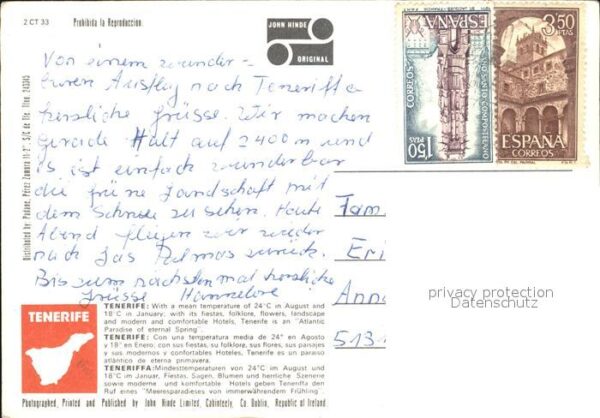 2 CT 33
Prohibida la Reproduccion
JOHN HINDE
ORIGINAL
Von einem wunder-
baren Ausflug nach Teneriffa
herzliche Grüsse. Wir machen
gerade Halt auf 2400 m und
es ist einfach wunderbar
die grüne Landschaft mit
dem Schnee zu sehen. Heute
Abend fliegen wir wieder
nach Las Palmas zurück.
Bis zum nächsten mal herzliche
Grüsse Hannelore
Fam
Eri
Anna
513
ESPAÑA
AÑO SANTO COMPOSTELANO
CORREOS
1,50 PTAS
3,50
PTAS
ESPAÑA
CORREOS
privacy protection
Datenschutz
TENERIFE
TENERIFE: With a mean temperature of 24°C in August and
18°C in January; with its fiestas, folklore, flowers, landscape
and modern and comfortable Hotels, Tenerife is an "Atlantic
Paradise of eternal Spring".
TENERIFE: Con una temperatura media de 24° en Agosto
y 18° en Enero; con sus fiestas, su folklore, sus flores, sus paisajes
y sus modernos y confortables Hoteles, Tenerife es un paraiso
atlántico de eterna primavera.
TENERIFFA: Mindesttemperaturen von 24°C im August und
18°C im Januar, Fiestas, Sagen, Blumen und herrliche Szenerie
sowie moderne und komfortable Hotels geben Teneriffa den
Ruf eines "Meeresparadieses von immerwährendem Frühling".
Photographed, Printed and Published by John Hinde Limited, Cabinteely, Co. Dublin, Republic of Ireland